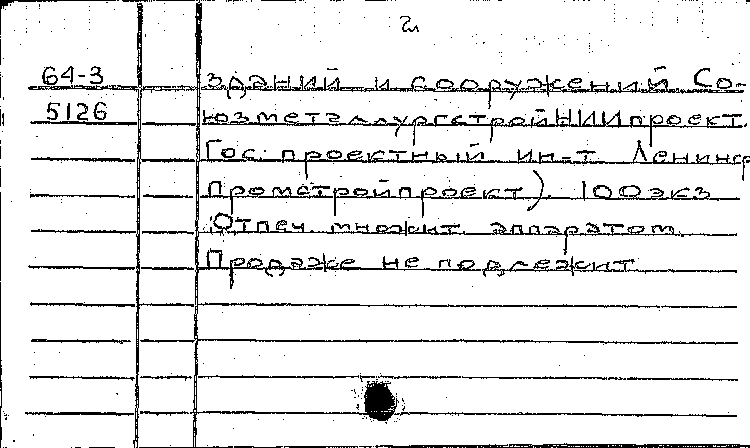 2
64-3 зданий и сооружений Со-
5126 юзметаллургстройНИИпроект.
Гос. проектный ин-т Ленингр
Промстройпроект). 100экз
Отпеч. множит. аппаратом.
Продаже не подлежит